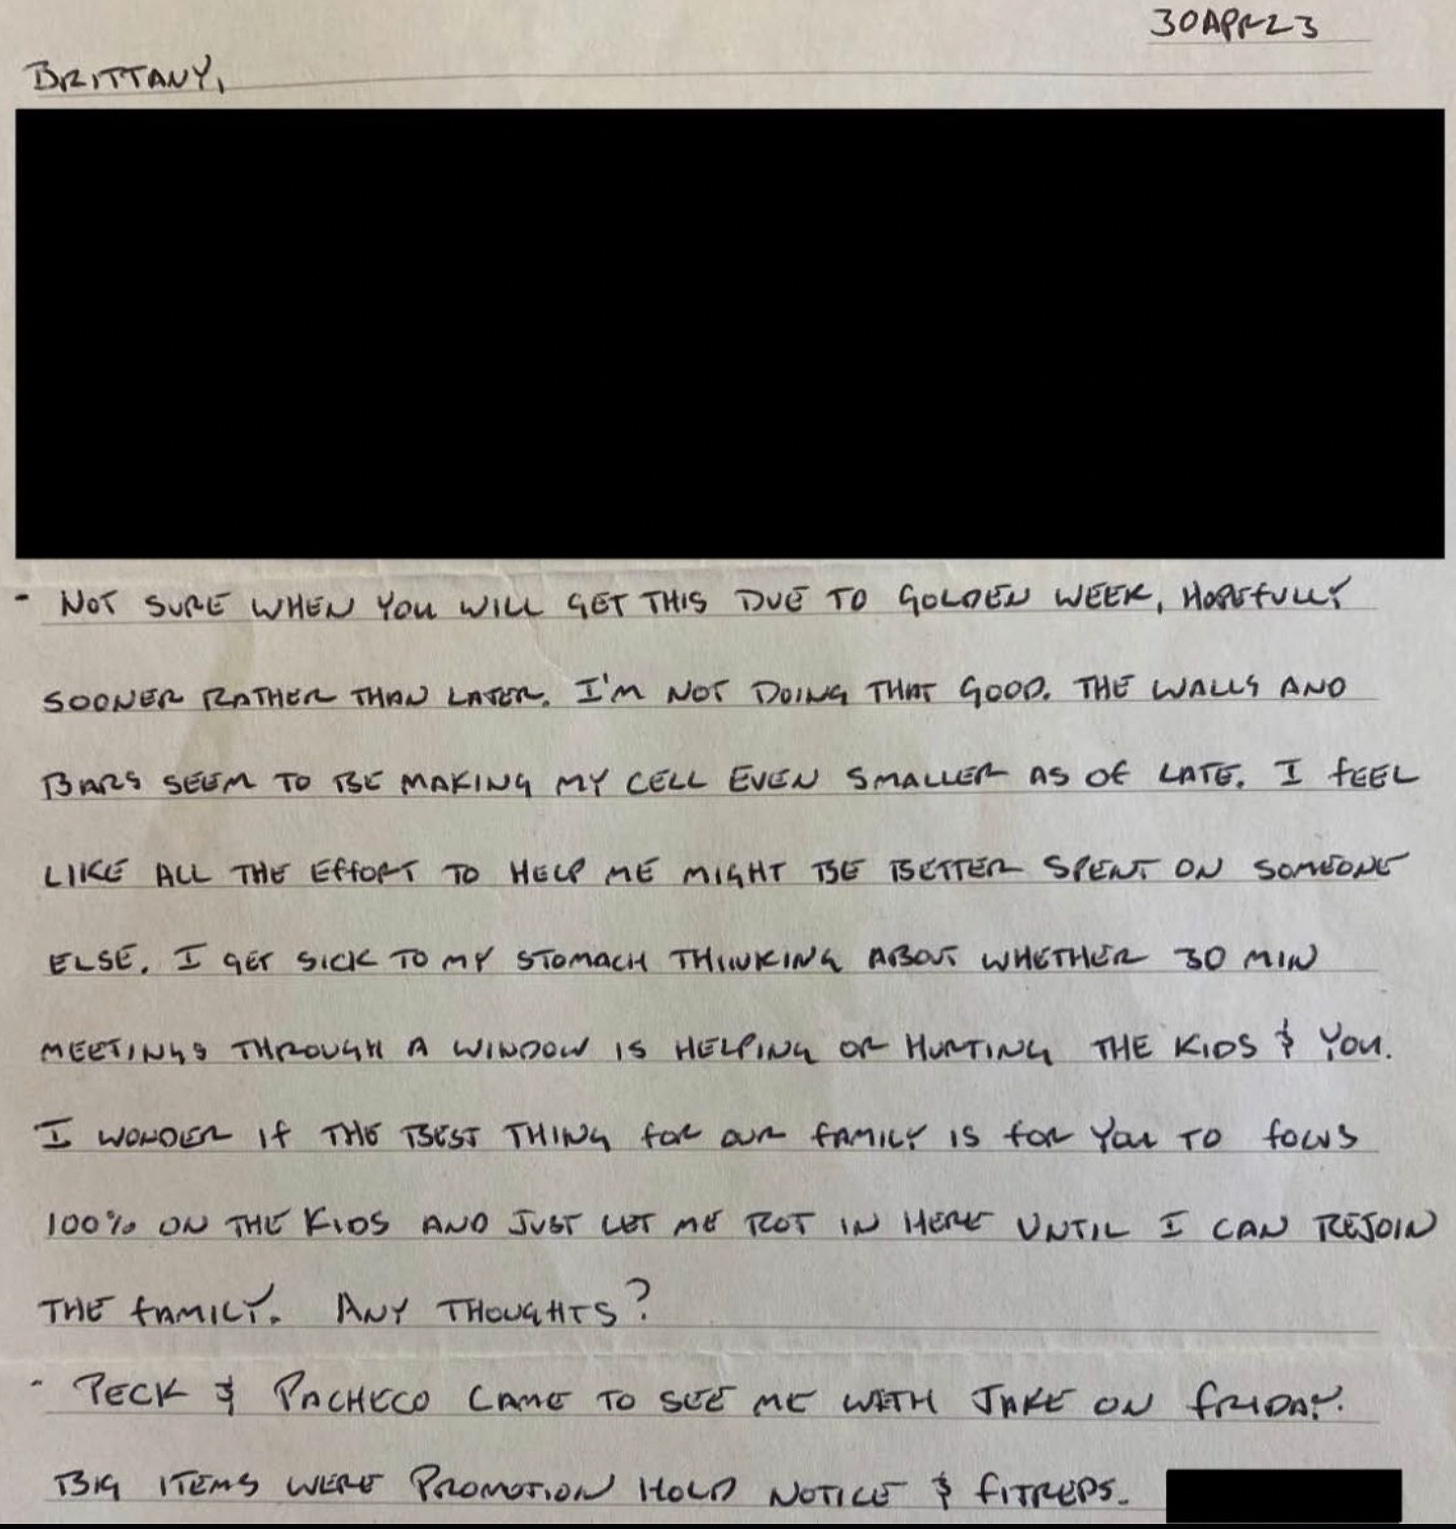 30APR23
BRITTANY,
- NOT SURE WHEN YOU WILL GET THIS DUE TO GOLDEN WEEK, HOPEFULLY
SOONER RATHER THAN LATER. I'M NOT DOING THAT GOOD. THE WALLS AND
BARS SEEM TO BE MAKING MY CELL EVEN SMALLER AS OF LATE. I FEEL
LIKE ALL THE EFFORT TO HELP ME MIGHT BE BETTER SPENT ON SOMEONE
ELSE. I GET SICK TO MY STOMACH THINKING ABOUT WHETHER 30 MIN
MEETINGS THROUGH A WINDOW IS HELPING OR HURTING THE KIDS & YOU.
I WONDER IF THE BEST THING FOR OUR FAMILY IS FOR YOU TO FOCUS
100% ON THE KIDS AND JUST LET ME ROT IN HERE UNTIL I CAN REJOIN
THE FAMILY. ANY THOUGHTS?
- PECK & PACHECO CAME TO SEE ME WITH JAKE ON FRIDAY.
BIG ITEMS WERE PROMOTION HOLD NOTICE & FITREPS.